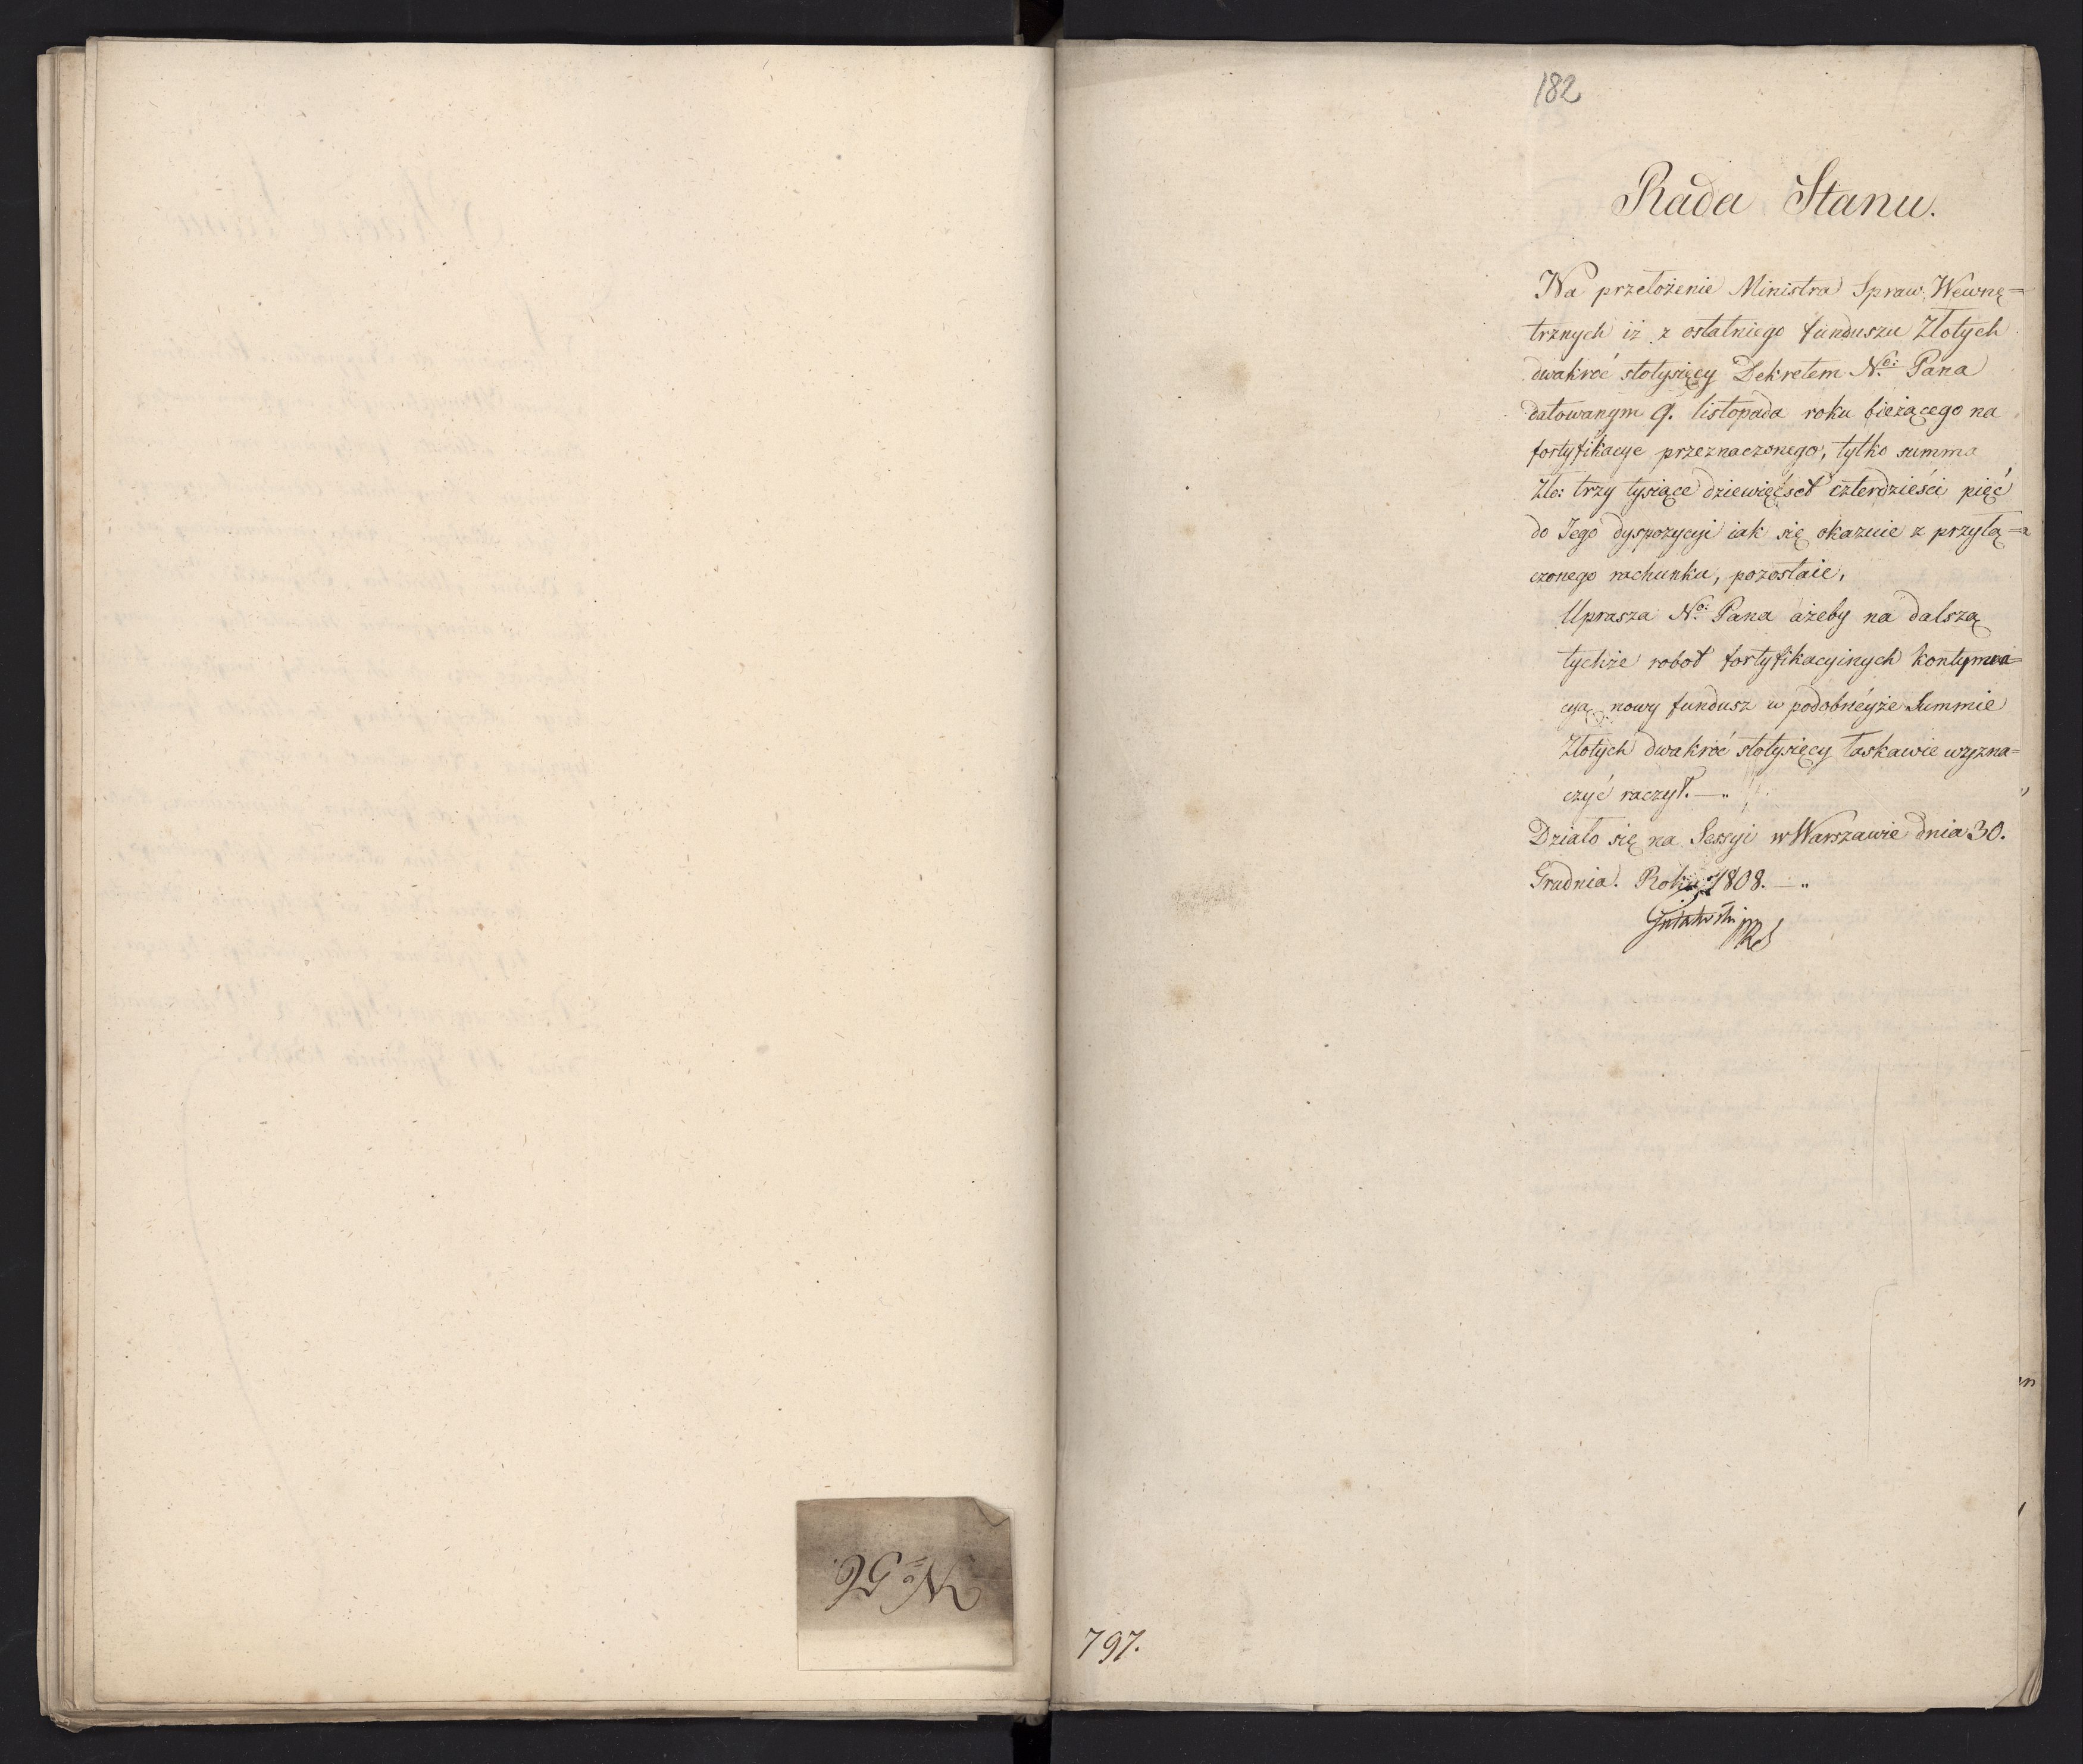 No 56.
182
Rada Stanu.
Na przełożenie Ministra Spraw Wewnę=
trznych iż z ostatniego funduszu Złotych
dwakroć stotysięcy Dekretem No: Pana
datowanym 9. listopada roku bieżącego na
fortyfikacye przeznaczonego, tylko summa
Zło: trzy tysiące dziewięćset czterdzieści pięć
do Jego dyspozycyi iak się okazuie z przyłą=
czonego rachunku, pozostaie,
Uprasza No: Pana ażeby na dalszą
tychże robot fortyfikacyinych kontynua=
cyą nowy fundusz w podobnéyże Summie
Złotych dwakroć stotysięcy łaskawie wyzna=
czyć raczył. —„
Działo się na Sessyi w Warszawie dnia 30.
Grudnia. Roku 1808. —„
797.